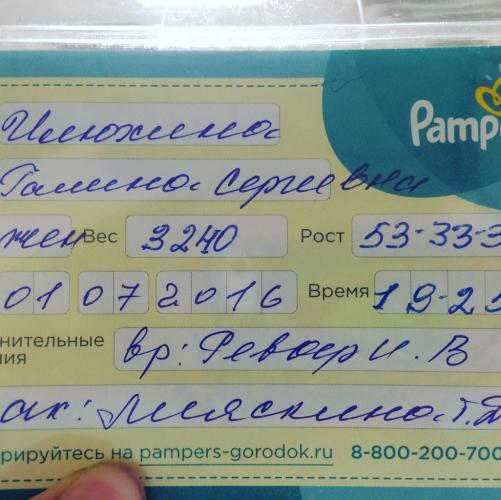 Pampe
Илюхина
Галина Сергеевна
жен Вес 3240 Рост 53-33-3
01 07 2016 Время 19-2
нительные
ния
вр: Ревоар И. В
ак: Мляскина Т. Д
рируйтесь на pampers-gorodok.ru 8-800-200-700